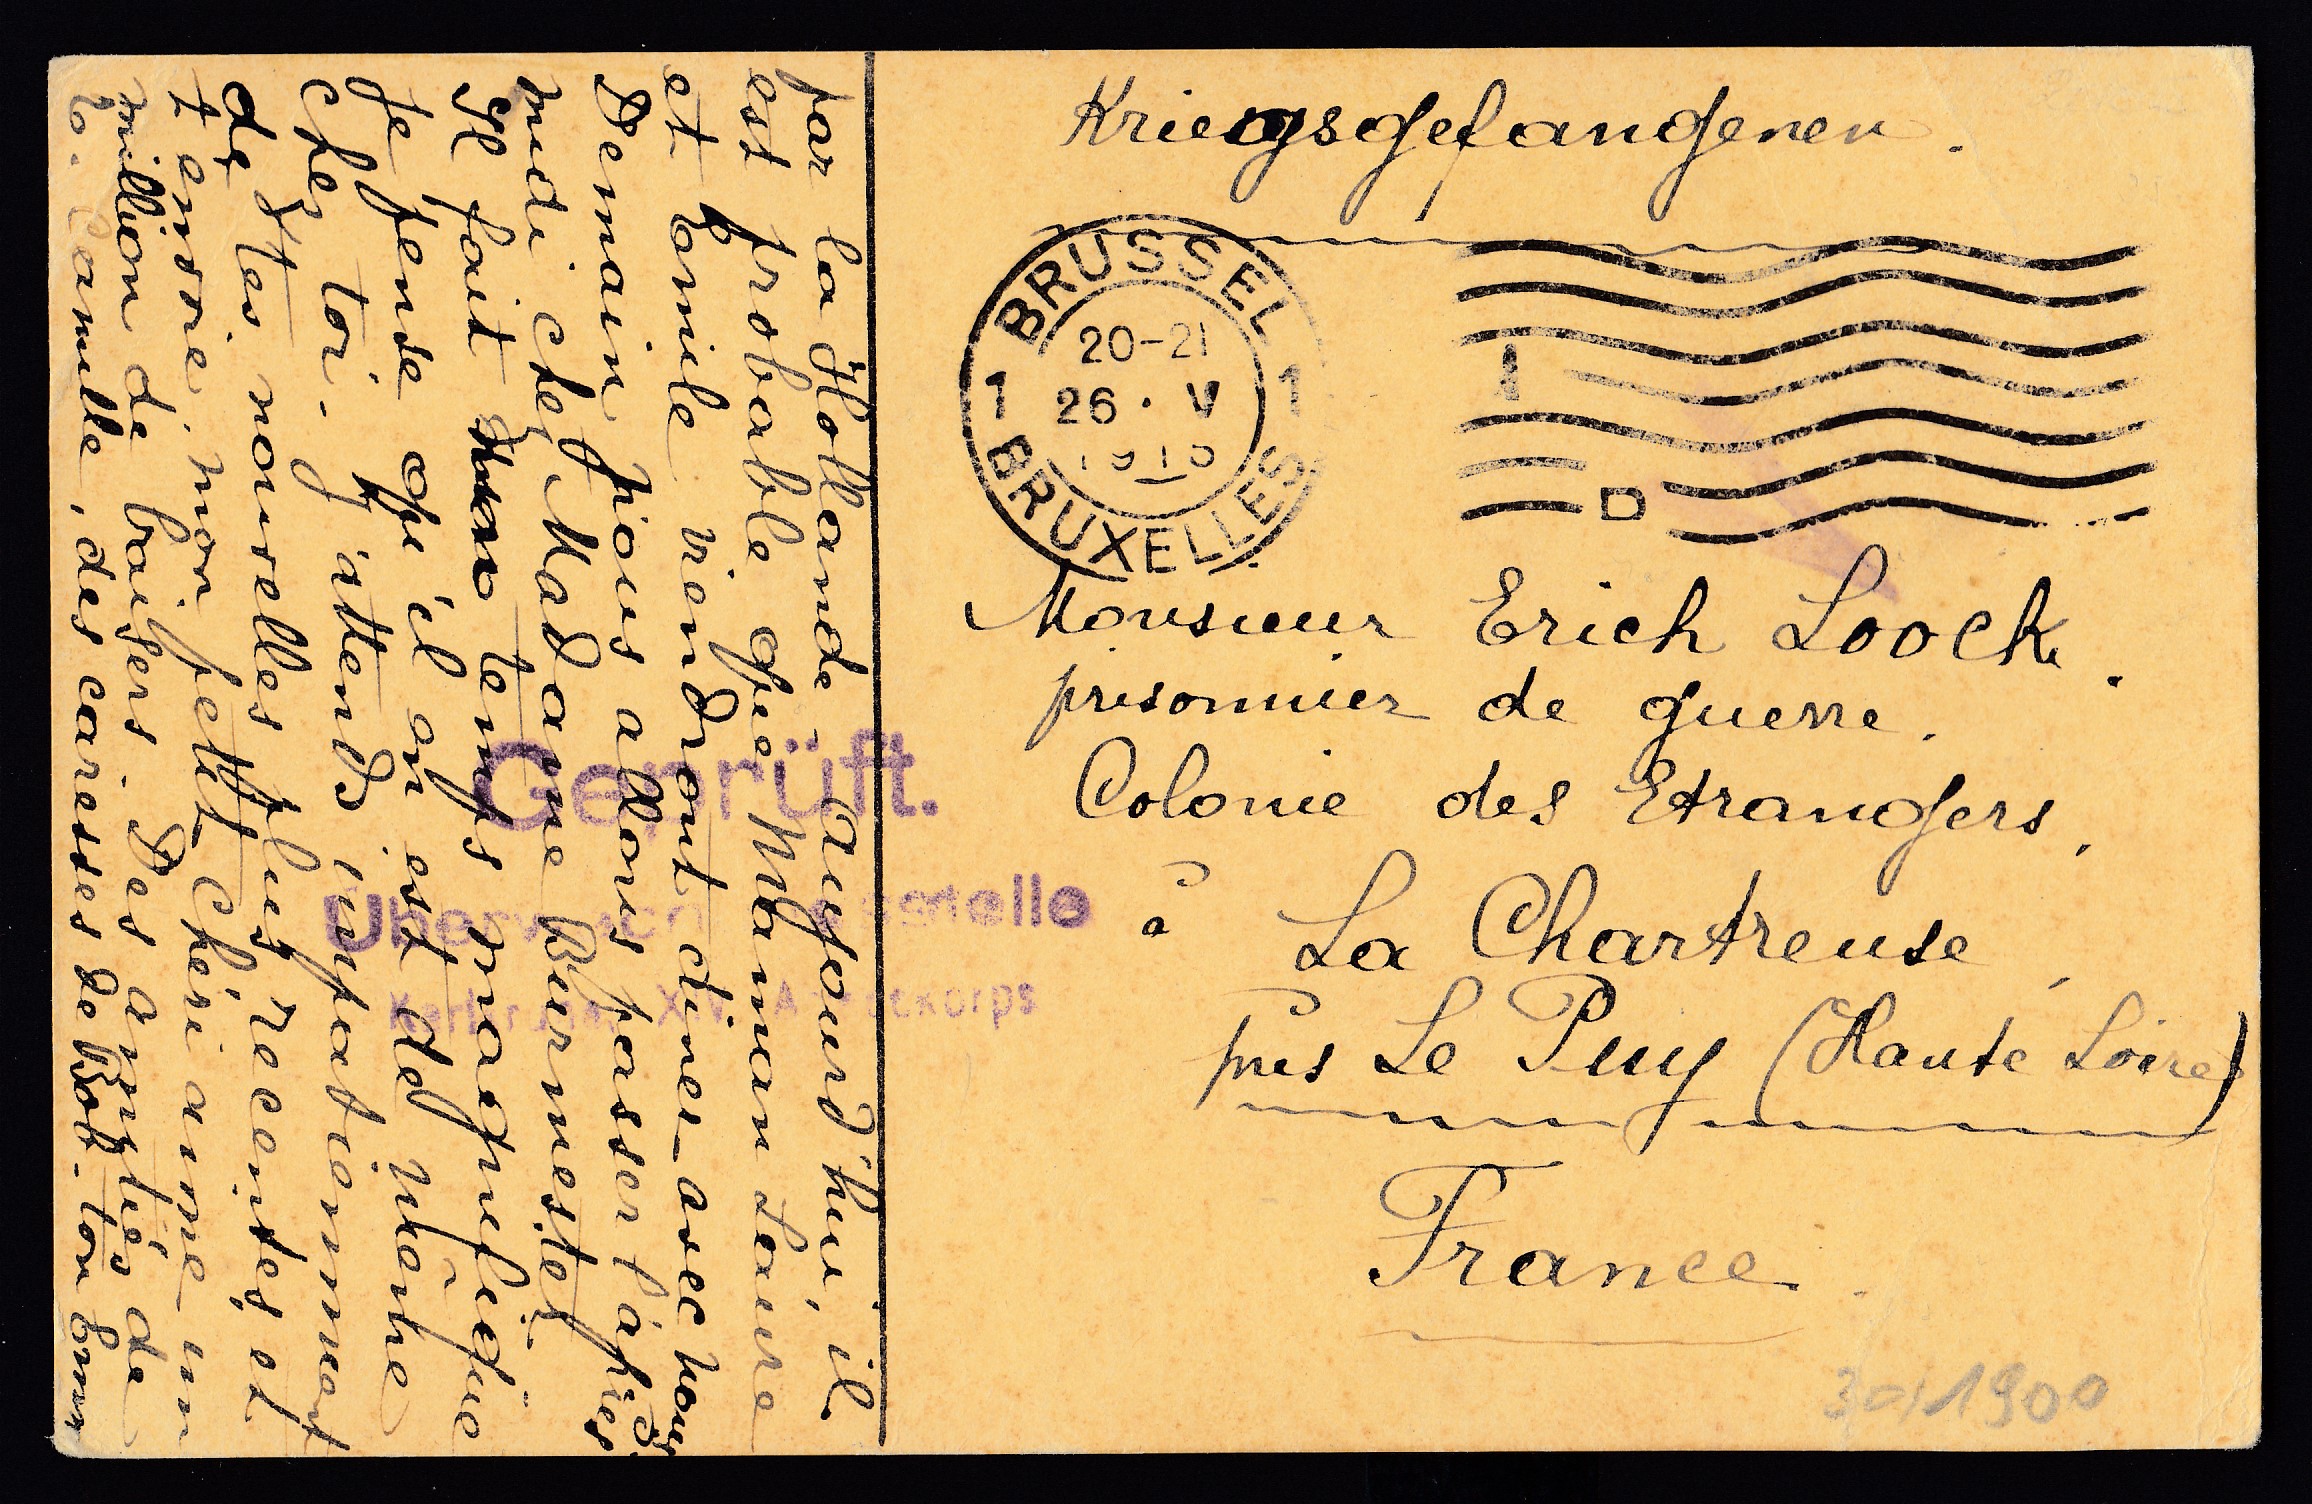 Kriegsgefangenen.
BRUSSEL
20-21
1 26 · V 1
BRUXELLES
Monsieur Erich Loock.
prisonnier de guerre.
Colonie des Etrangers,
à La Chartreuse,
près Le Puy (Haute Loire)
France.
30/1900
par la Hollande. Aujourd'hui, il
est probable que Maman Laure
et Emile viendront diner avec nous
Demain nous allons passer l'après
midi chez Madame Burmester.
Il fait un temps magnifique
Je pense qu'il en est de même
chez toi. J'attends impatiemment
de tes nouvelles plus récentes et
t'envoie, mon petit chéri aimé un
million de baisers. Des amitiés de
Camille, des caresses de Bob. ton
Geprüft.
Überwachungsstelle
Karlsruhe XIV. Armeekorps